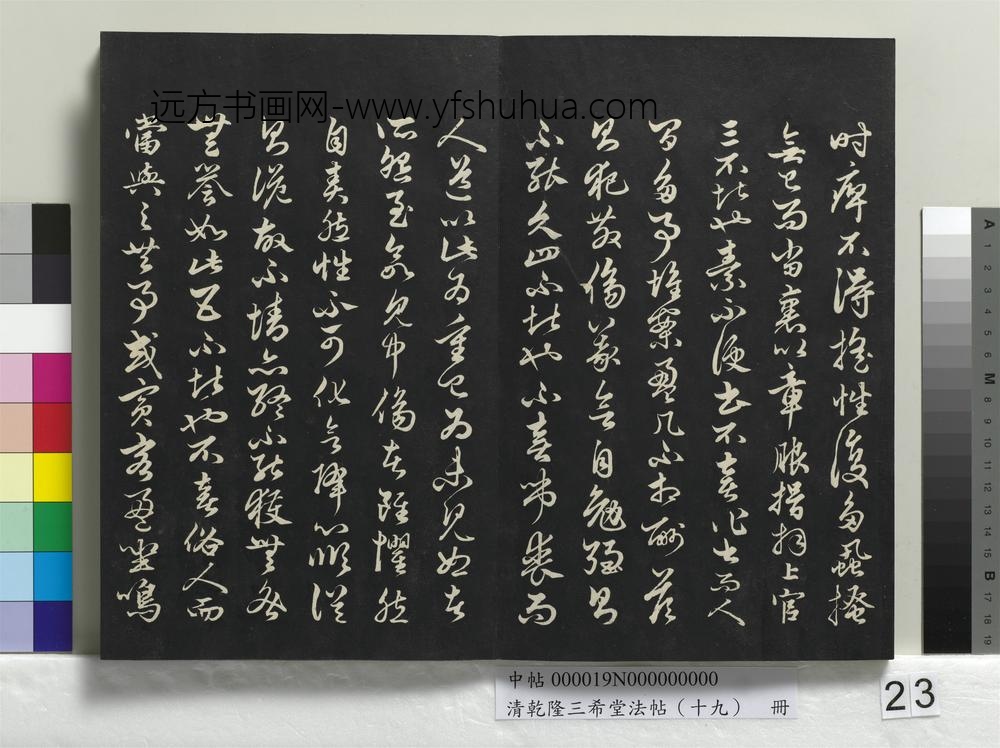 时痺不得搖性復多蝨搔
無已而當裹以章服揖拜上官
三不堪也素不便書不喜作書而人
間多事堆案盈几不相酬答
則犯教傷義欲自勉强則
不能久四不堪也不喜弔喪而
人道以此為重已為未見恕者
所怨至欲見中傷者雖懼然
自責然性不可化欲降心順俗
則詭故不情亦終不能獲無咎
無譽如此五不堪也不喜俗人而
當與之共事或賓客盈坐鳴
远方书画网-www.yfshuhua.com
中帖 000019N000000000
清乾隆三希堂法帖（十九） 冊
23
A 1 2 3 4 5 6 M 8 9 10 11 12 13 14 15 B 17 18 19